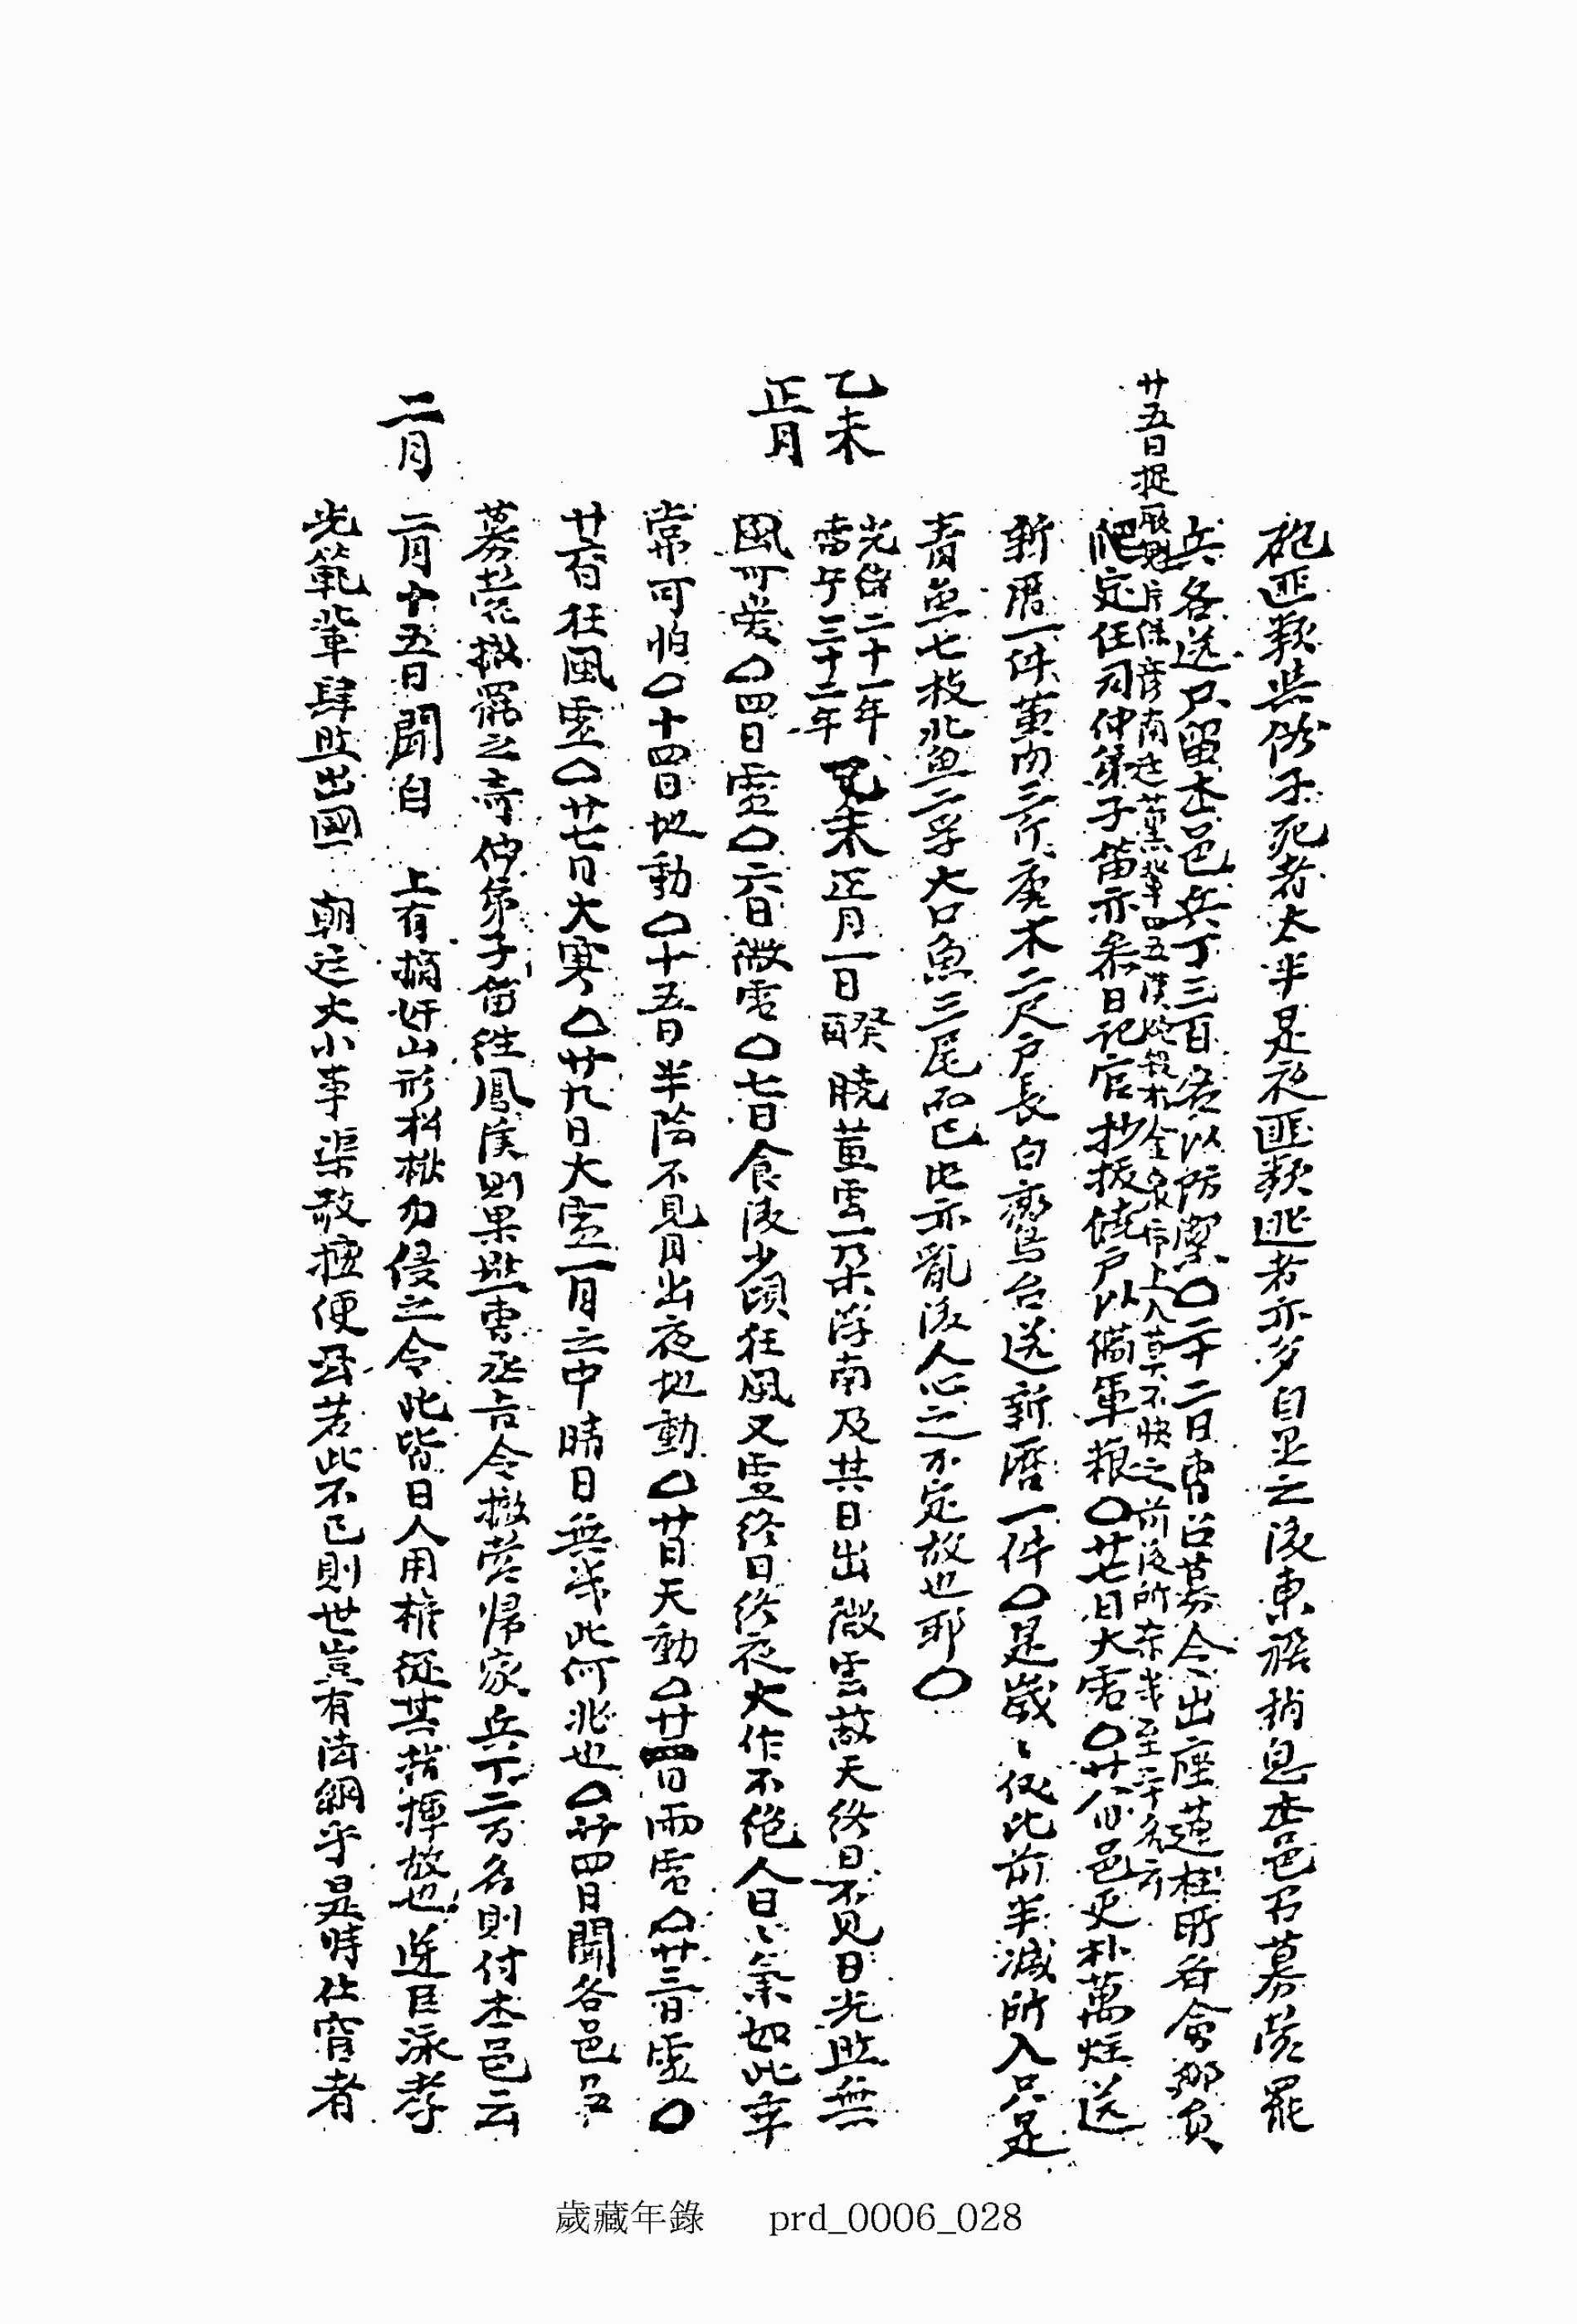 砲匪類與從子死者太半是夜匪類逃者亦多自是之後東擾稍息本邑召募營罷
兵各送只留本邑兵丁三百名以防禦○二十二日曺召募令出座蓮桂所各會那負
廿五日捉
南
四五漢
金泉市上人莫不快之前後所
至三十名云
爬定任司仲弟子笛亦參日記官抄扱饒戶以備軍粮○廿七日大雪○廿八日邑吏朴萬炷送
新曆一件黃肉三斤廣木二尺戶長白鸞台送新曆一件○是歲歲儀比前半減所入只是
青魚七枝北魚二孚大口魚三尾而已此亦亂後人心之不定故也耶○
乙未
正月
光緖二十一年
當宁三十二年 乙未正月一日癸酉曉黃雲一朶浮南及其日出微雲蔽天終日不見日光然無
風可愛○四日雪○六日微雪○七日食後少頃狂風又雪終日終夜大作不絶人日日氣如此幸
常可怕○十四日地動○十五日半陰不見月出夜地動○廿日天動○廿四日雨雪○廿三日雪○
廿五日狂風雪○廿七日大寒○廿九日大雪一月之中晴日無幾此何兆也○廿四日聞各邑召
募營撤罷之奇仲弟子笛往鳳溪則果然曺丞旨令撤營歸家兵丁二万名則付本邑云
二月
二月十五日聞自 上有摘奸山形松楸勿侵之令此皆日人用權從其指揮故也逆臣泳孝
光範輩肆然出國 朝廷大小事渠敢擅便云若此不已則世豈有法綱乎是時仕宦者
歲藏年錄 prd_0006_028